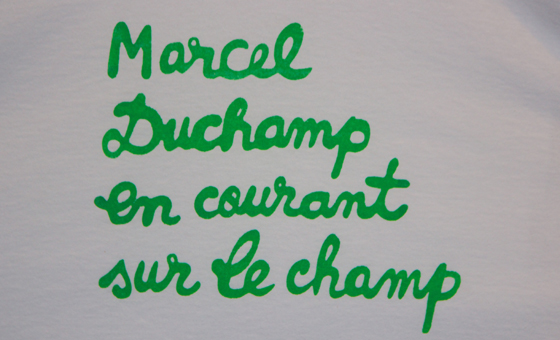 Marcel
Duchamp
en courant
sur le champ